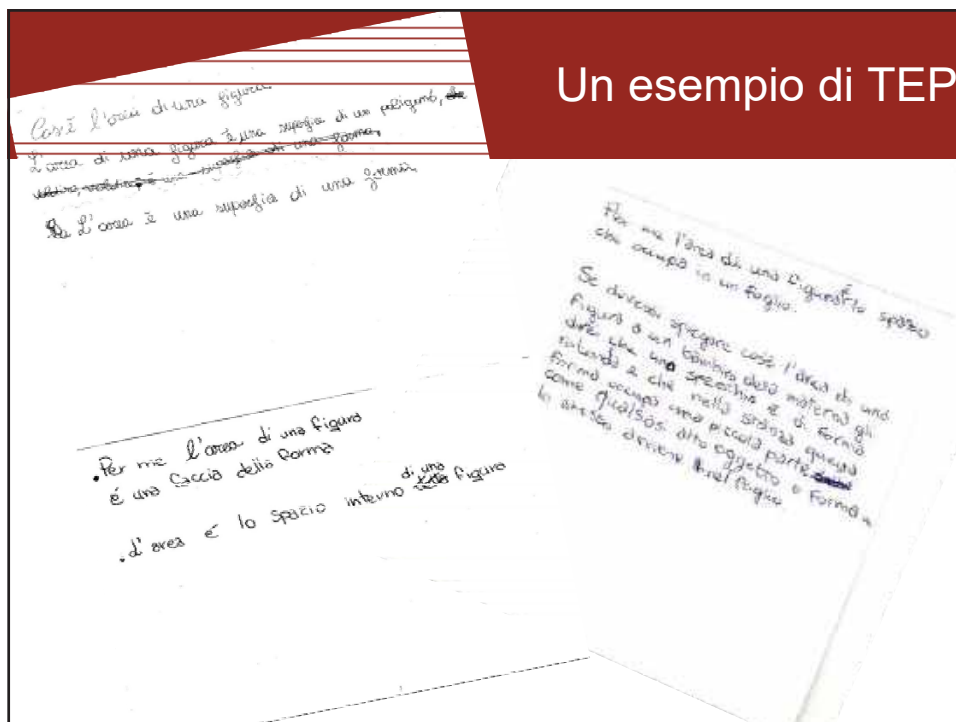 Un esempio di TEP
Cos'è l'area di una figura
L'area di una figura è una superfice di un poligono, che
è una superfice di una forma,
L'area è una superfice di una
• Per me l'area di una figura
é una faccia della forma
• L'area é lo spazio interno di una figura
Per me l'area di una figura É lo spazio
che occupa in un foglio.
Se dovessi spiegare cosè l'area di una
figura a un bambino della materna gli
direi che uno specchio è di forma
rotonda e che nella stanza questa
forma occupa una piccola parte
come qualsiasi altro oggetto o forma
lo stesso nel foglio